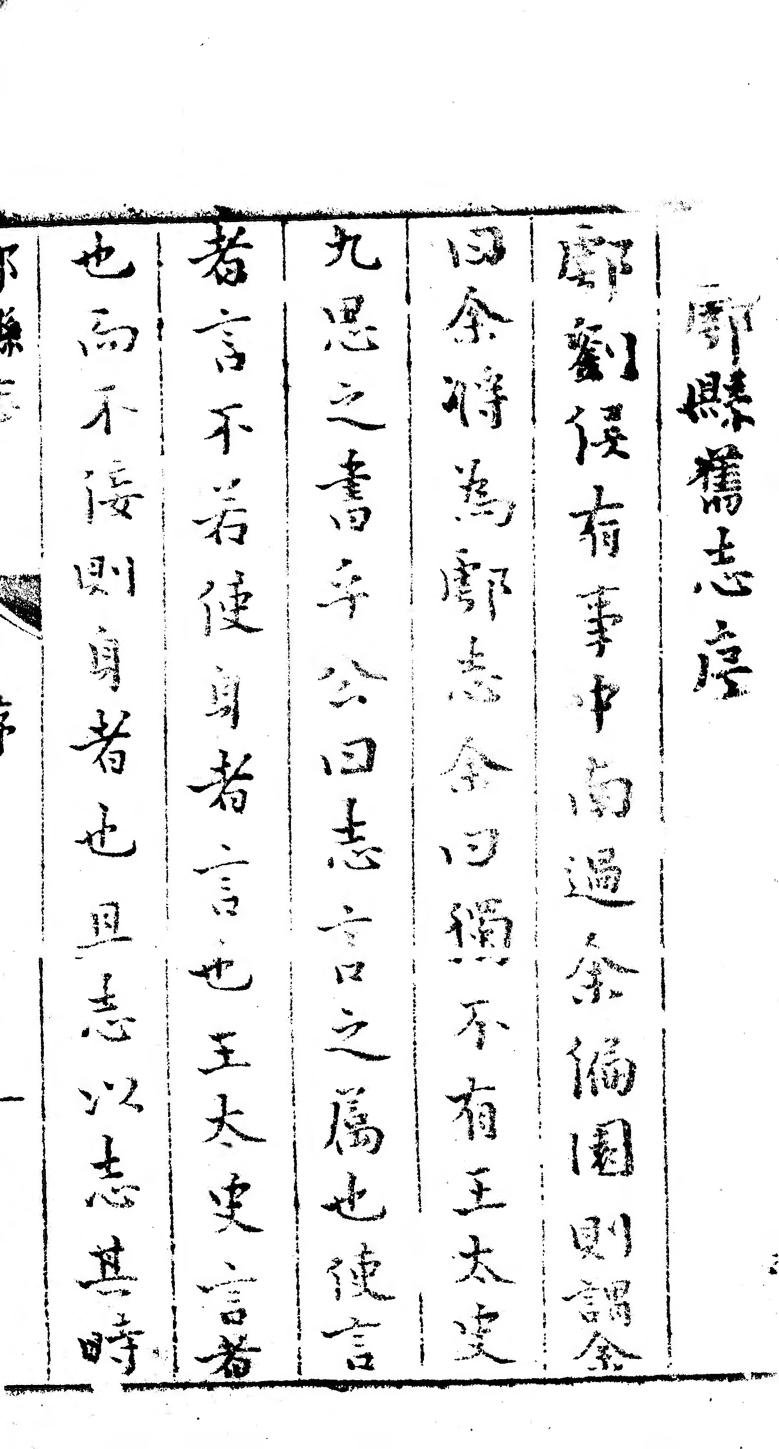 鄠縣舊志序
鄠劉侯有事中南過余偏園則謂余
曰余將為鄠志余曰獨不有王太史
九思之書乎公曰志言之屬也使言
者言不若使身者言也王太史言者
也而不侫則身者也且志以志其時
縣志
序
一